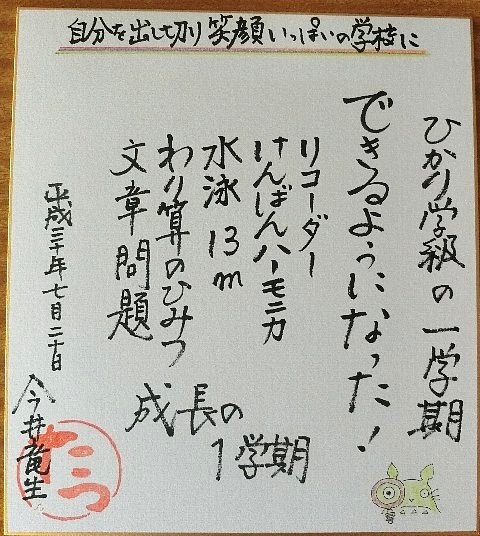 自分を出し切り笑顔いっぱいの学校に
ひかり学級の一学期
できるようになった！
リコーダー
けんばんハーモニカ
水泳 13m
わり算のひみつ
文章問題
成長の
1学期
平成三十年七月二十日
今井竜生
たつ